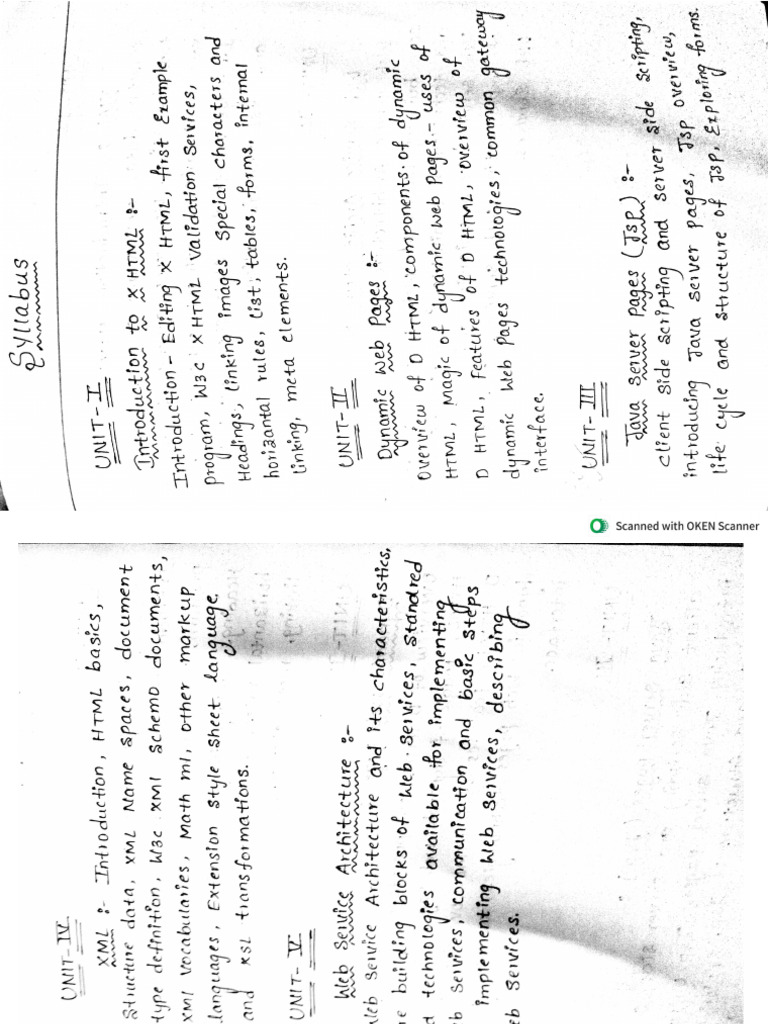 Syllabus
UNIT-I
Introduction to X HTML :-
Introduction - Editing X HTML, first Example
program, W3c XHTML Validation Services,
Headings, linking images Special characters and
horizantal rules, List, tables, forms, internal
linking, meta elements.
UNIT-II
Dynamic Web Pages :-
Overview of D HTML, components of dynamic
HTML, Magic of dynamic Web Pages - uses of
D HTML, Features of D HTML, overview of
dynamic Web Pages technologies, common gateway
interface.
UNIT-III
Java Server Pages (JSP) :-
client side scripting and server side scripting,
introducing Java server pages, JSP overview,
life cycle and structure of JSP, Exploring forms.
Scanned with OKEN Scanner
UNIT-IV
XML :- Introduction, HTML basics,
Structure data, XML Name Spaces, document
type definition, W3c XMl SchemD documents,
XMl Vocabularies, Math ml, Other markup
languages, Extension style sheet language
and XSL transformations.
UNIT-V
Web Service Architecture :-
Web Service Architecture and its characteristics,
e building blocks of Web Services, Standred
d technologies available for implementing
b Services, communication and basic steps
implementing Web Services, describing
eb Services.